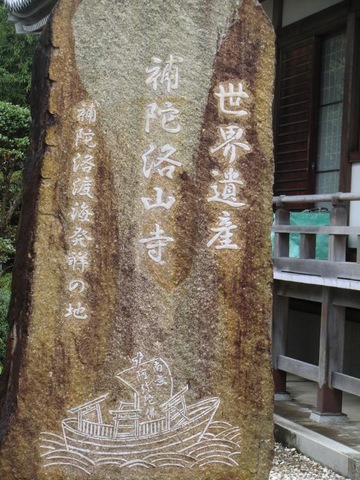 世界遺産
補陀洛山寺
補陀洛渡海発祥の地
南無
阿弥陀佛